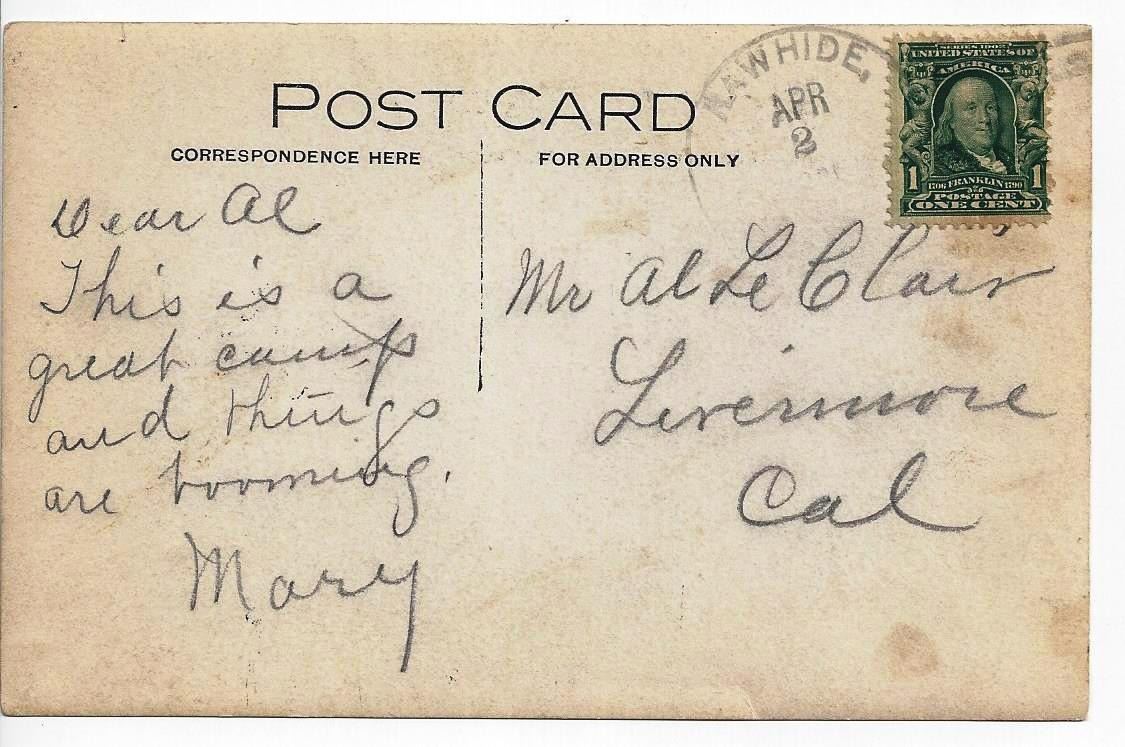 POST CARD
CORRESPONDENCE HERE
FOR ADDRESS ONLY
RAWHIDE,
APR
2
SERIES 1902
UNITED STATES OF
AMERICA
1
1706 FRANKLIN 1790
1
POSTAGE
ONE CENT
Dear Al
This is a
great camp
and things
are booming.
Mary
Mr Al Le Clair
Livermore
Cal